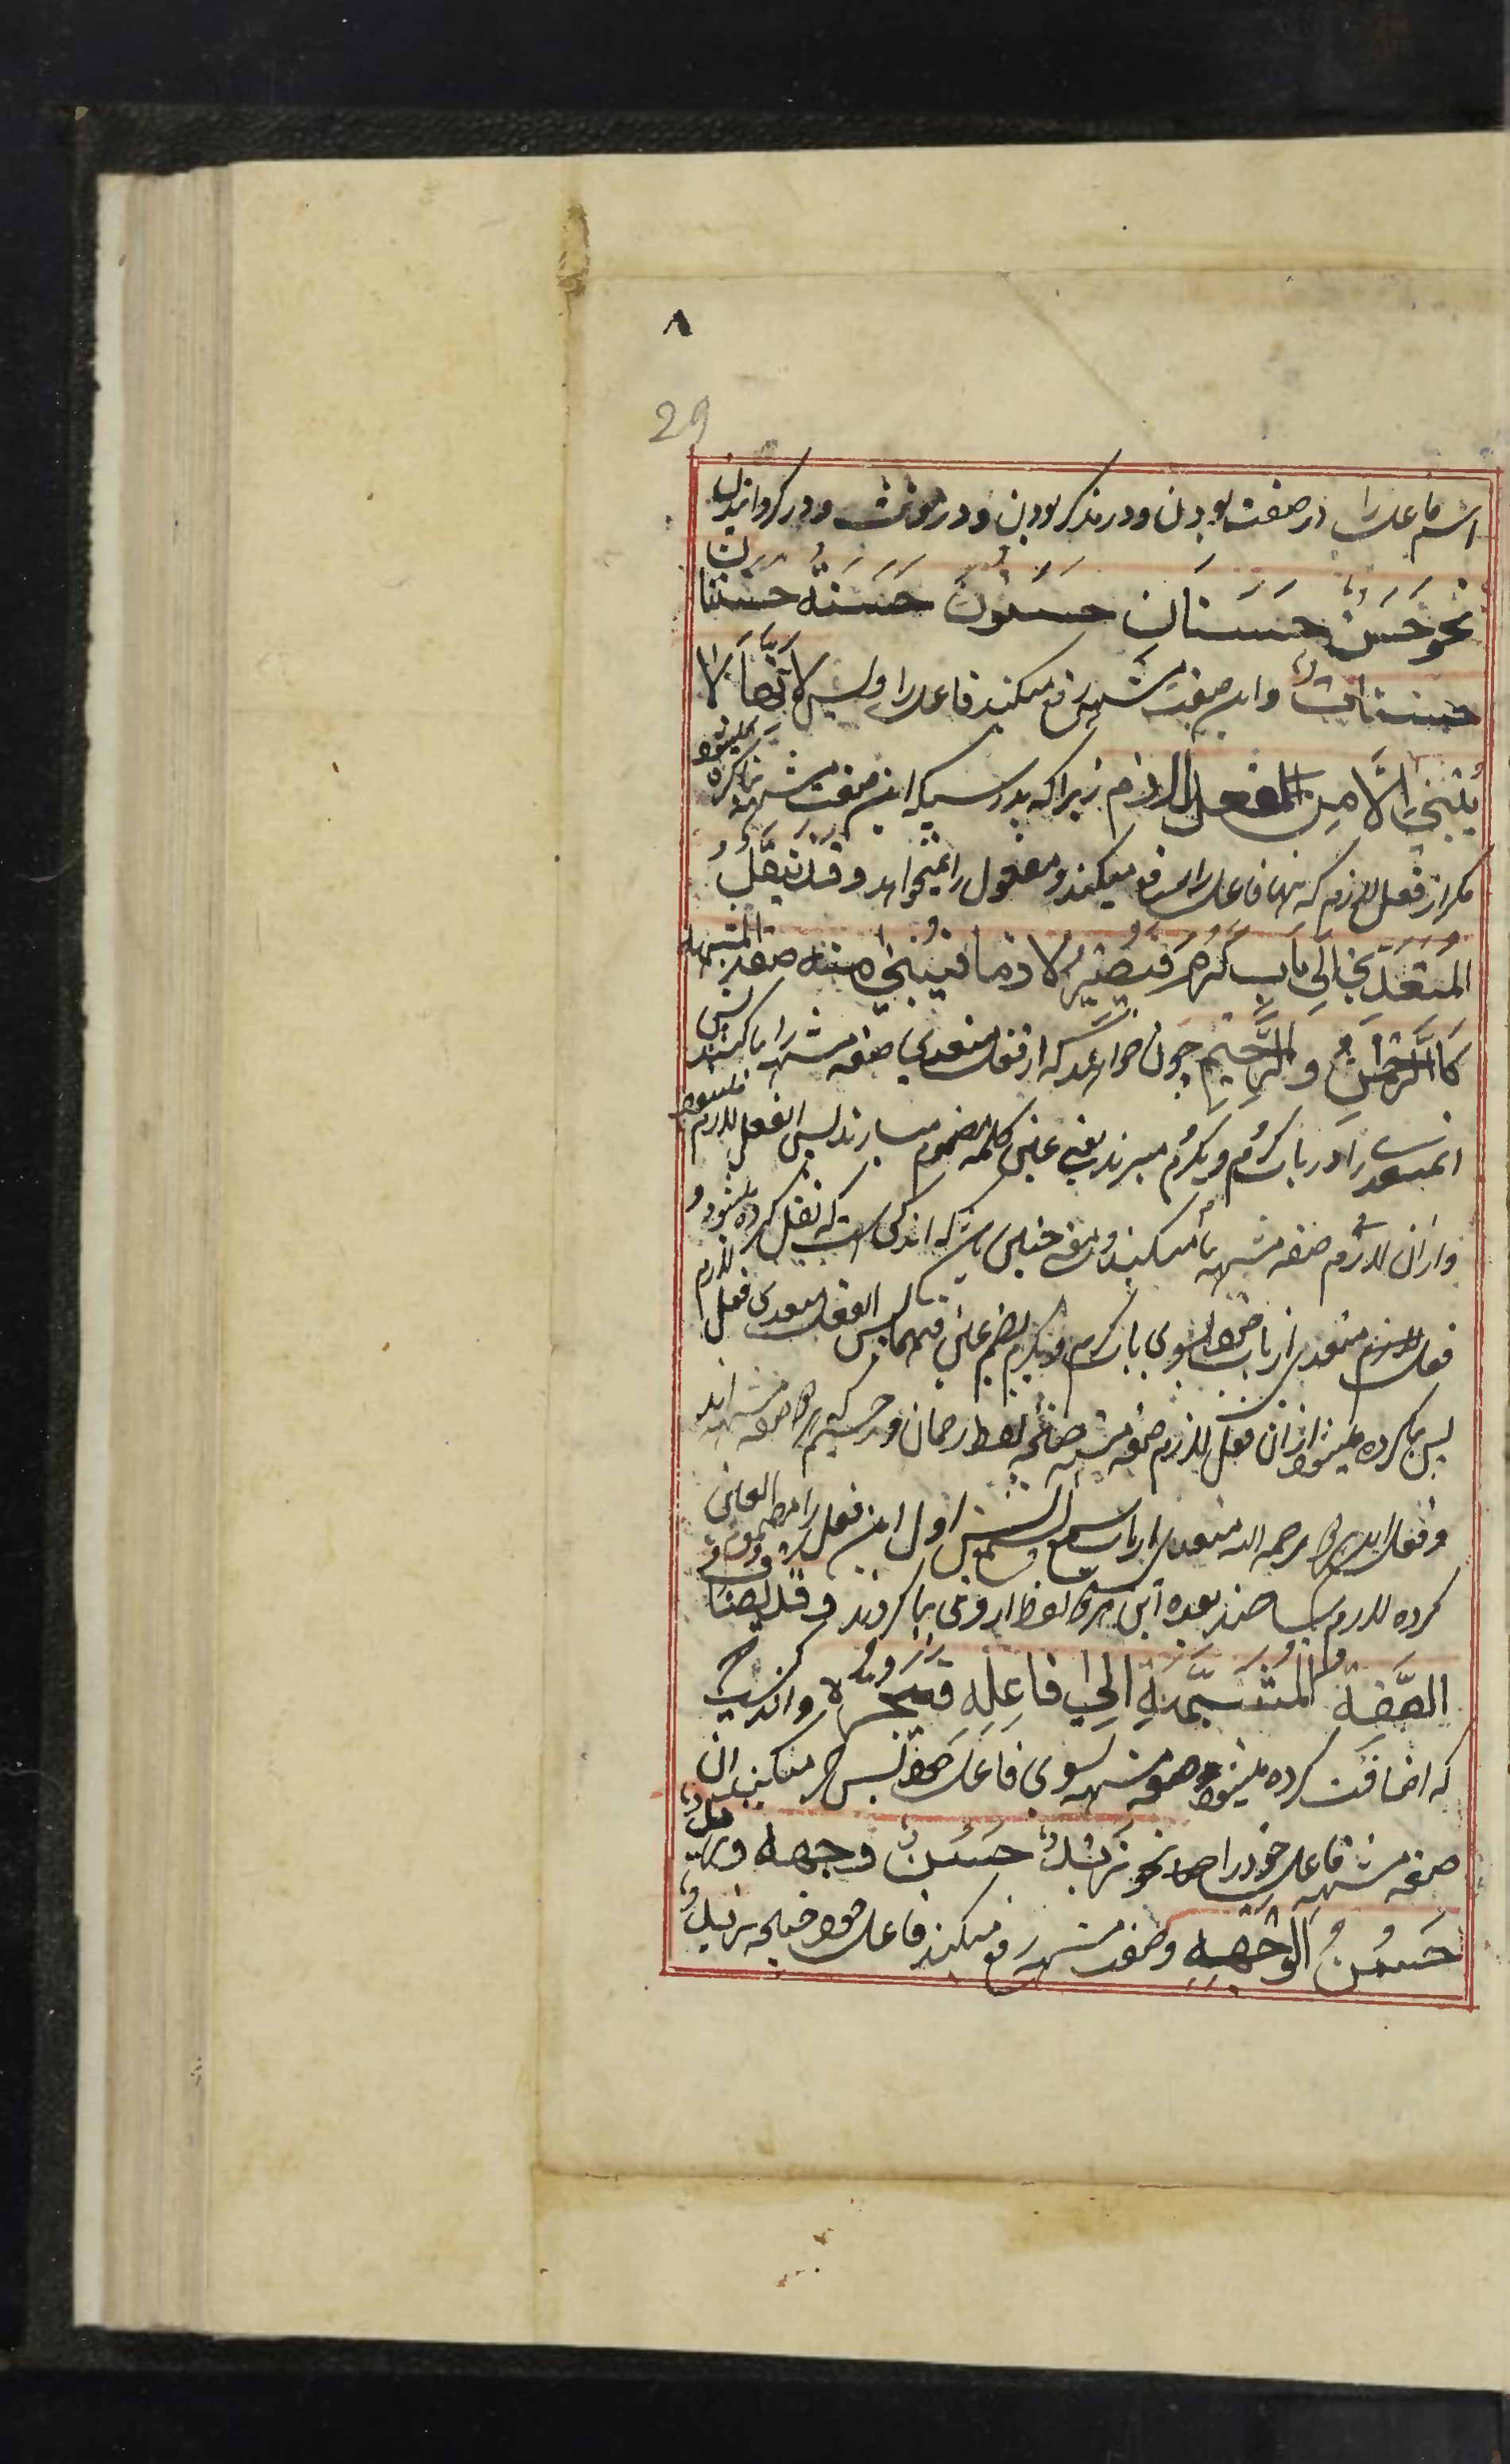 ٨
29
اسم فاعل را در صفت بودن و در مذکر بودن و در مونث و در گردانیدن
نحو حَسَنٌ حَسَنَانِ حَسَنُونَ حَسَنَةٌ حَسَنَتَانِ
حسنات و این صفت مشبهه رفع میکند فاعل را و لیس لانها لا
یُبنی الّا مِن الفعل اللازم زیرا که بدرستیکه این صفت مشبهه بنا کرده نمیشود
مکر از فعل لازم که تنها فاعل را رفع میکند و مفعول را نمیخواهد و قد ینقل
المُتعَدّی اِلی باب کَرُمَ فَیَصیرُ لازما فیُبنی منه صفة المشبهة
کَالرَّحمٰنِ والرَّحِیمِ چون خواهند که از فعل متعدی صفه مشبهه را بنا کنند پس
آن متعدی را در باب کرُم و یکرُم میبرند یعنی عین کلمه مضموم میسازند پس آن فعل لازم میشود
و از آن لازم صفه مشبهه بنا میکنند و معنی چنین باشد که اندکی است که نقل کرده میشود
فعل متعدی از باب خود بسوی باب کرم و یکرم بضم عین فیهما پس آن فعل متعدی فعل لازم
پس بنا کرده میشود از آن فعل لازم صفه مشبهه چنانچه لفظ رحمان و رحیم که هر دو صفه مشبهه اند
و فعل این هر دو رحمه الله متعدی از باب سمع یسمع پس اول این فعل را مضموم العین
کرده لازم ساختند بعده این هر دو لفظ از وی بنا کردند و قد یضاف
الصّفة المُشَبَّهَةِ اِلیٰ فاعِلِهِ فَیَجُرُّهُ و اندکیست
که اضافت کرده میشود صفه مشبهه بسوی فاعل خود پس جر میکند آن
صفه مشبهه فاعل خود را نحو زیدٌ حَسَنُ وجهه و زیدٌ
حَسَنُ الوَجهِ و صفت مشبهه رفع میکند فاعل خود چنانچه زیدٌ